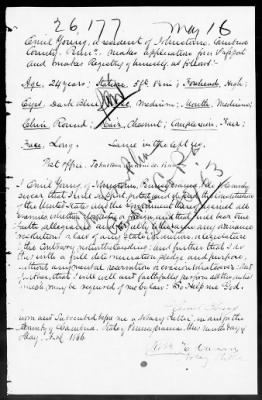 26,177 May 16
Emil Young, a resident of Johnstown, Cambria
County, Penn. makes application for Passport
and makes Registry of himself as follows:-
Age, 24 years; Stature, 5 ft. 8 ins; Forehead, High;
Eyes, Dark Blue; Medium; Mouth, Medium;
Chin, Round; Hair, Chesnut; Complexion, Fair;
Face, Long.
Post Office Johnstown Cambria
I Emil Young, of Johnstown, Pennsylvania, do solemnly
swear that I will support, protect and defend the constitution
of the United States and the Government thereof against all
enemies whether domestic or foreign, and that I will bear true
faith, allegiance and loyalty to the same any ordinance
resolution or law of any State Convention or Legislature
to the contrary notwithstanding; and further that I do
this with a full determination pledge and purpose,
without any mental reservation or evasion whatsoever; and
further, that I will well and faithfully perform all the duties
which may be required of me by law. So help me God.
Emil Young
Sworn and Subscribed before me a Notary Public, in and for the
County of Cambria, State of Pennsylvania, this ninth day of
May, A.D. 1866
Notary Public